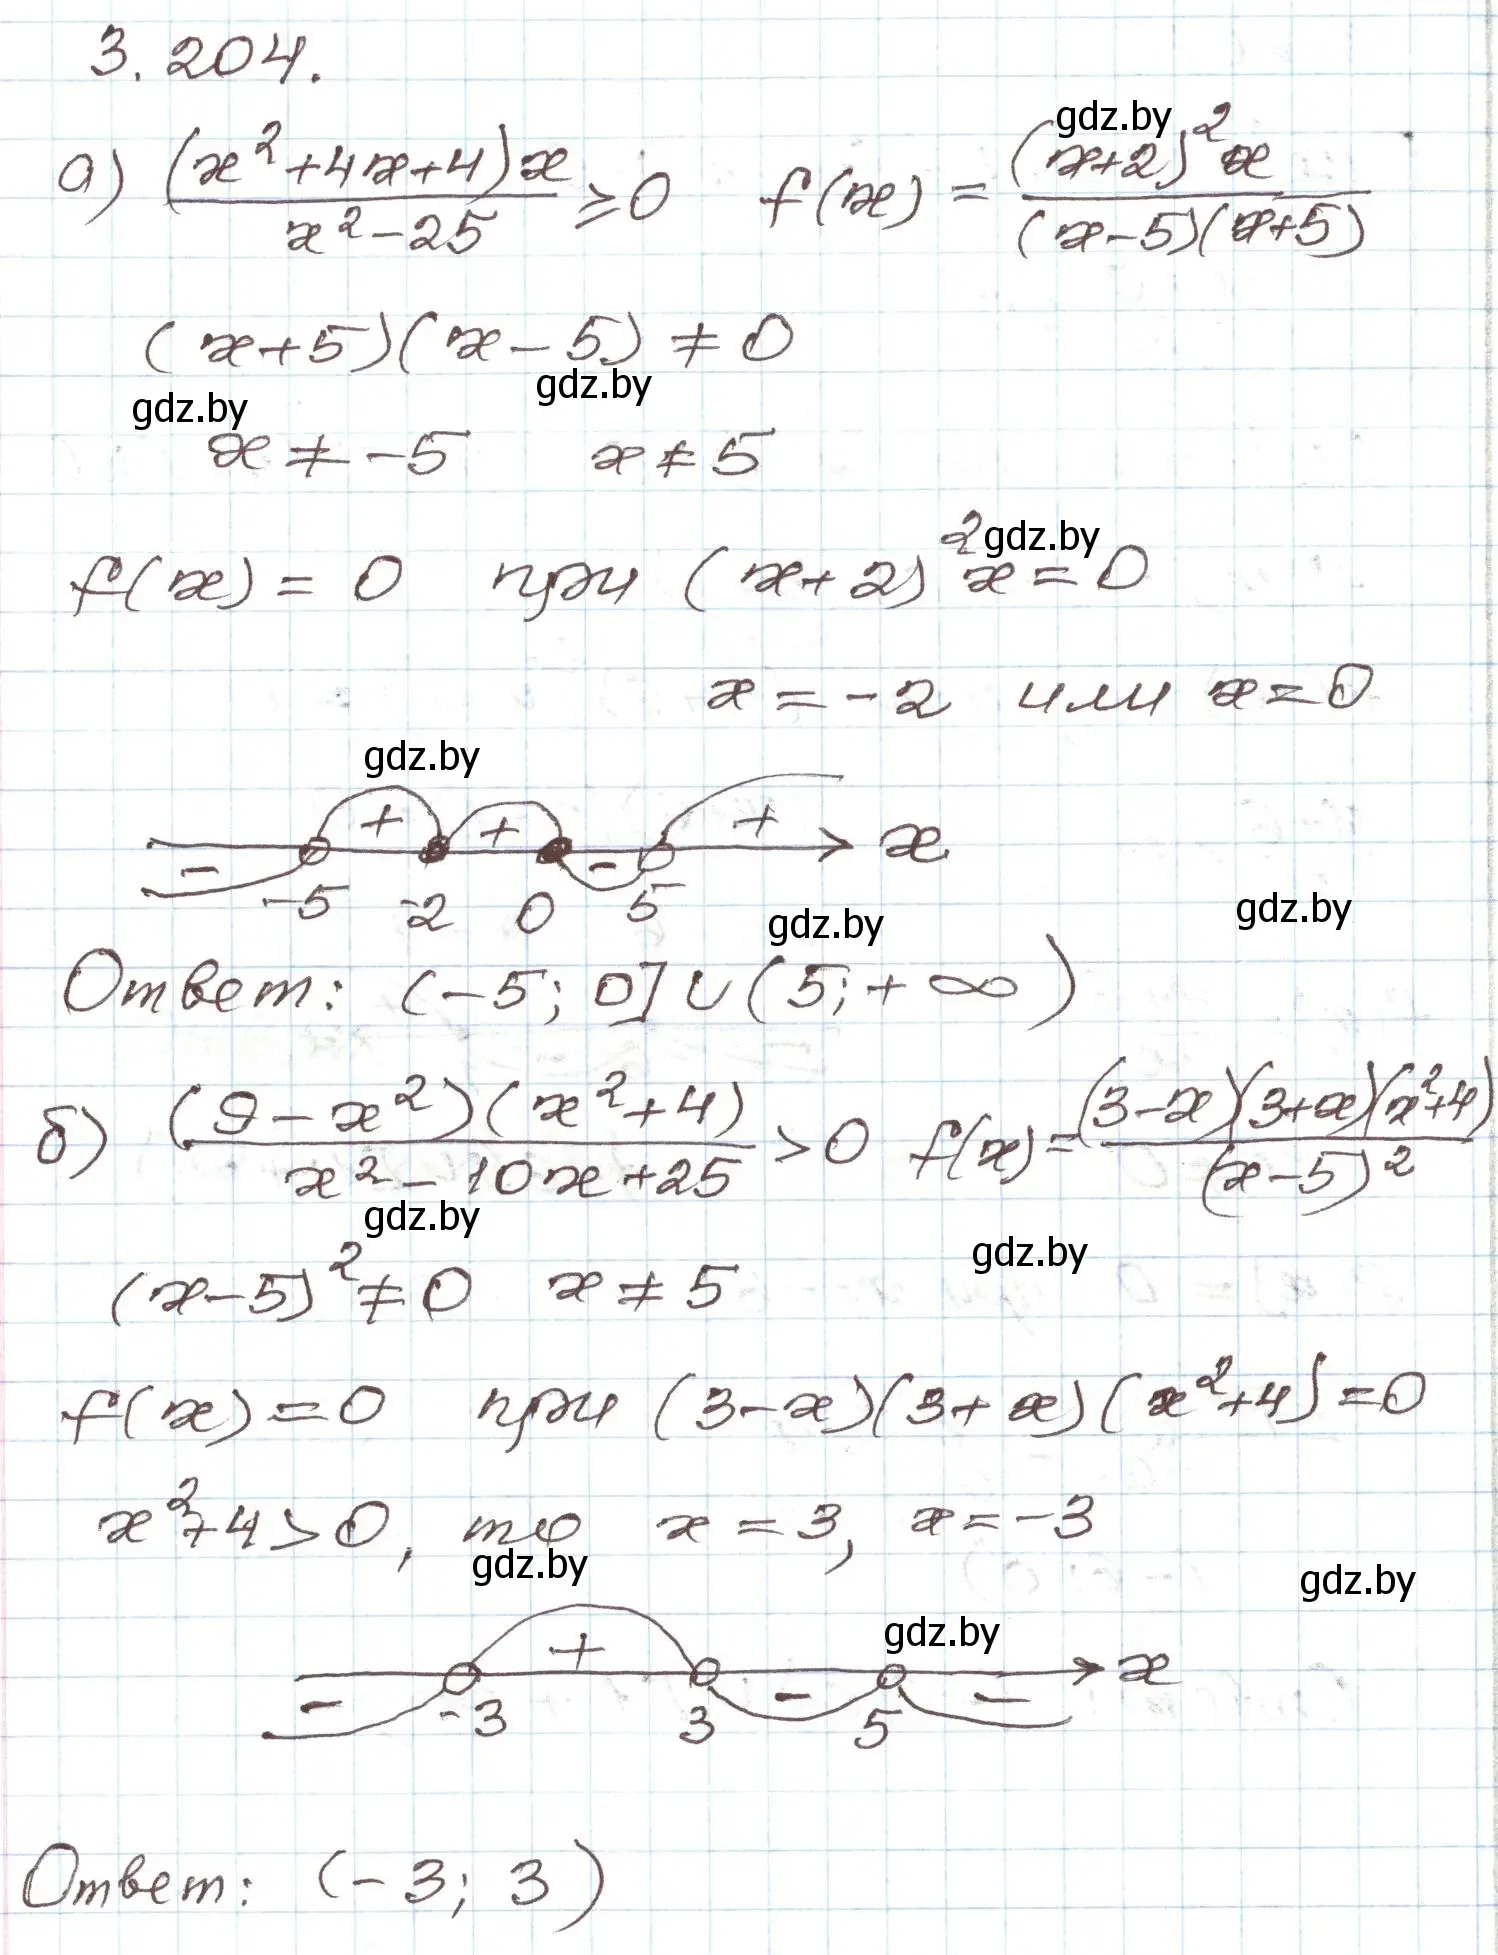 3.204.
gdz.by
а) (x² + 4x + 4)x / x² - 25 ≥ 0   f(x) = (x+2)²x / (x-5)(x+5)
(x+5)(x-5) ≠ 0
gdz.by gdz.by
x ≠ -5   x ≠ 5
gdz.by
f(x) = 0 при (x+2)²x = 0
x = -2 или x = 0
gdz.by
- + + - + x
-5 -2 0 5
gdz.by gdz.by
Ответ: (-5; 0] ∪ (5; +∞)
б) (9 - x²)(x² + 4) / x² - 10x + 25 > 0   f(x) = (3-x)(3+x)(x²+4) / (x-5)²
gdz.by gdz.by
(x-5)² ≠ 0   x ≠ 5
f(x) = 0 при (3-x)(3+x)(x²+4) = 0
x²+4 > 0, то x = 3, x = -3
gdz.by gdz.by
gdz.by
- + - - x
-3 3 5
Ответ: (-3; 3)